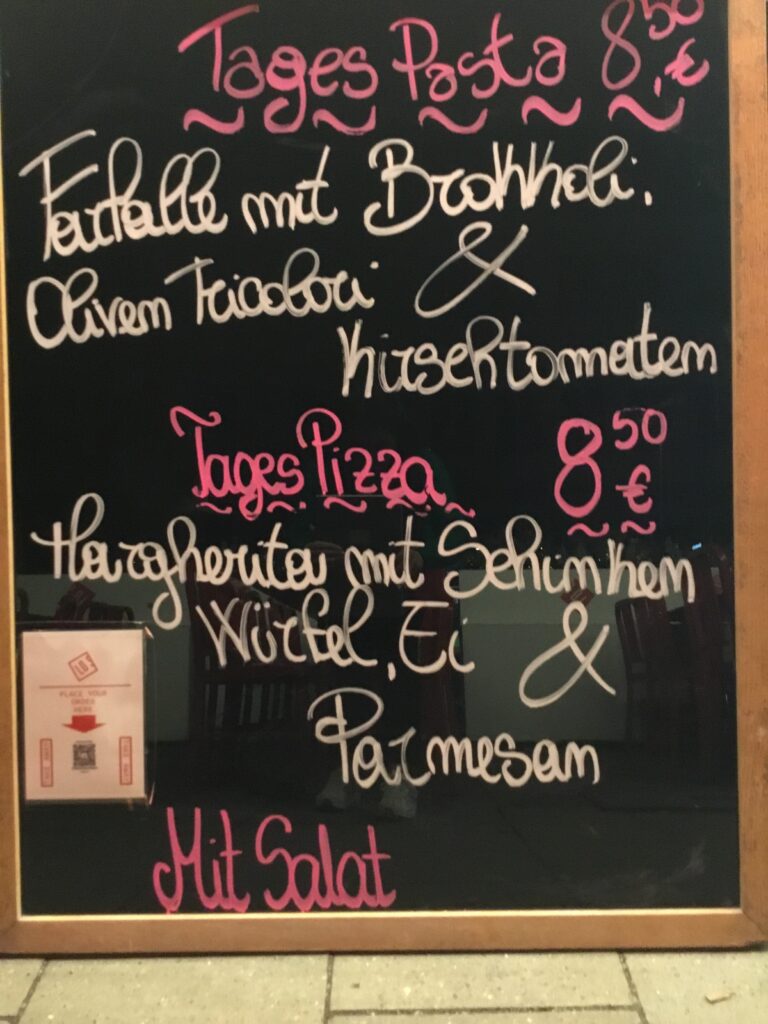 Tages Pasta 8,50 €
Farfalle mit Brokkoli,
Oliven Tricolori &
Kirschtomaten
Tages Pizza 8 50 €
Margherita mit Schinken
Würfel, Ei &
Parmesan
PLACE YOUR
ORDER
HERE
Mit Salat